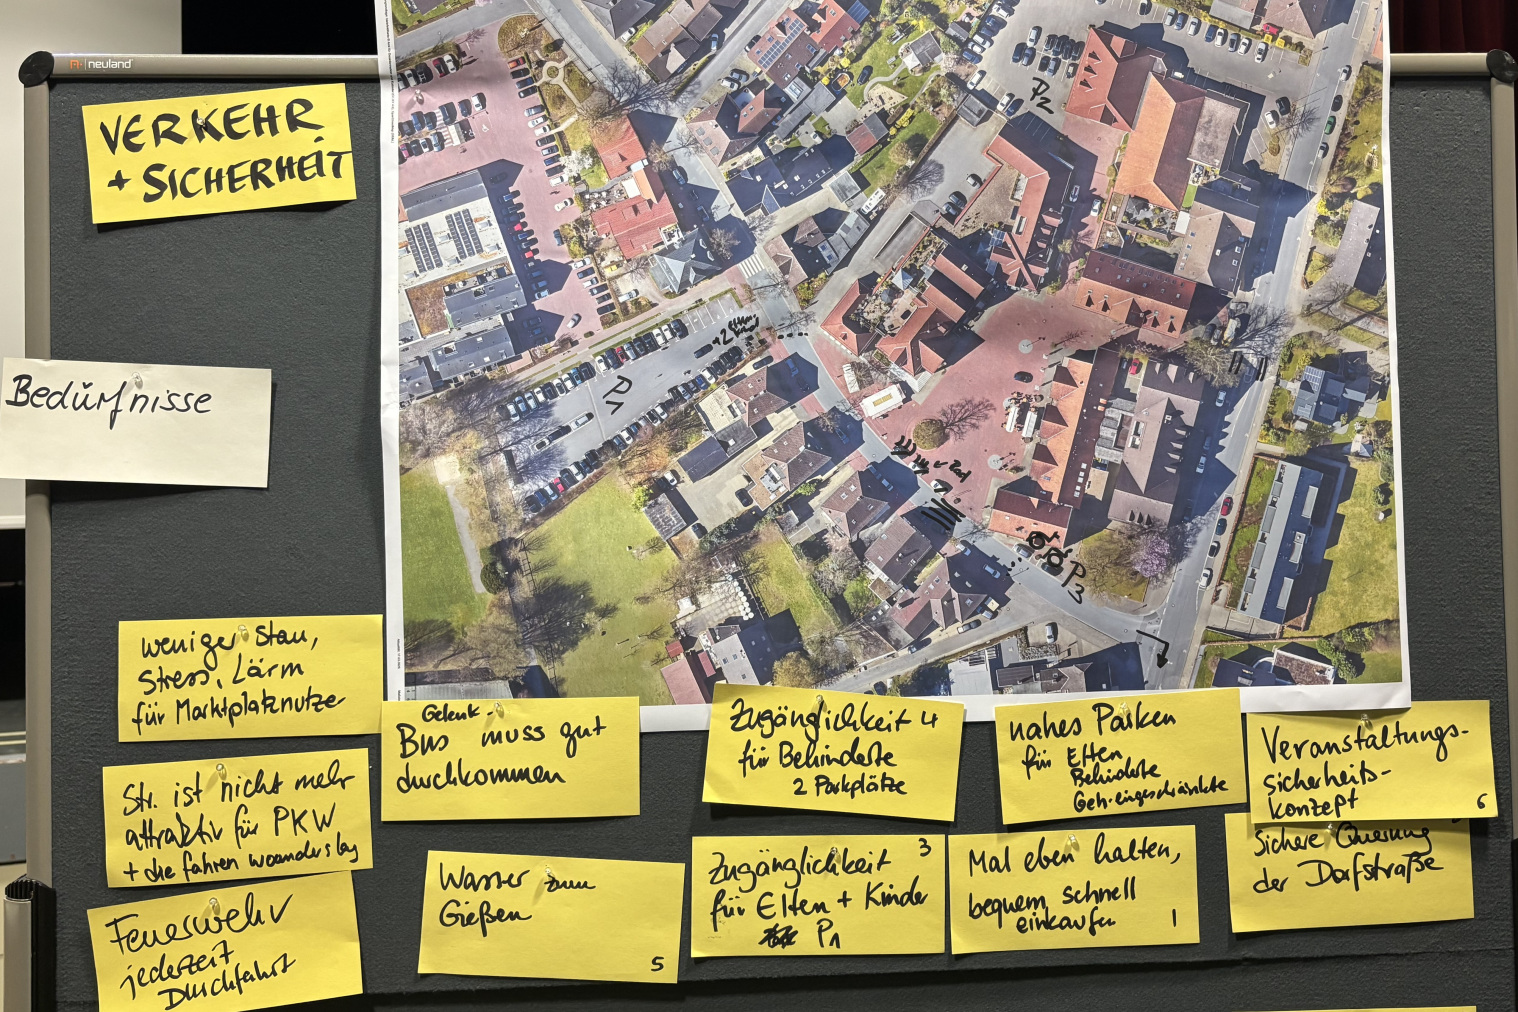 neuland
VERKEHR
+ SICHERHEIT
Bedürfnisse
P2
P1
+2
P3
weniger Stau,
Stress, Lärm
für Marktplatznutzer
Str. ist nicht mehr
attraktiv für PKW
+ die fahren woanders lang
Feuerwehr
jederzeit
Durchfahrt
Gelenk-
Bus muss gut
durchkommen
Wasser zum
Gießen
5
Zugänglichkeit 4
für Behinderte
2 Parkplätze
Zugänglichkeit 3
für Eltern + Kinder
P1
nahes Parken
für Eltern
Behinderte
Geh-eingeschränkte
Mal eben halten,
bequem, schnell
einkaufen 1
Veranstaltungs-
sicherheits-
konzept 6
Sichere Querung
der Dorfstraße